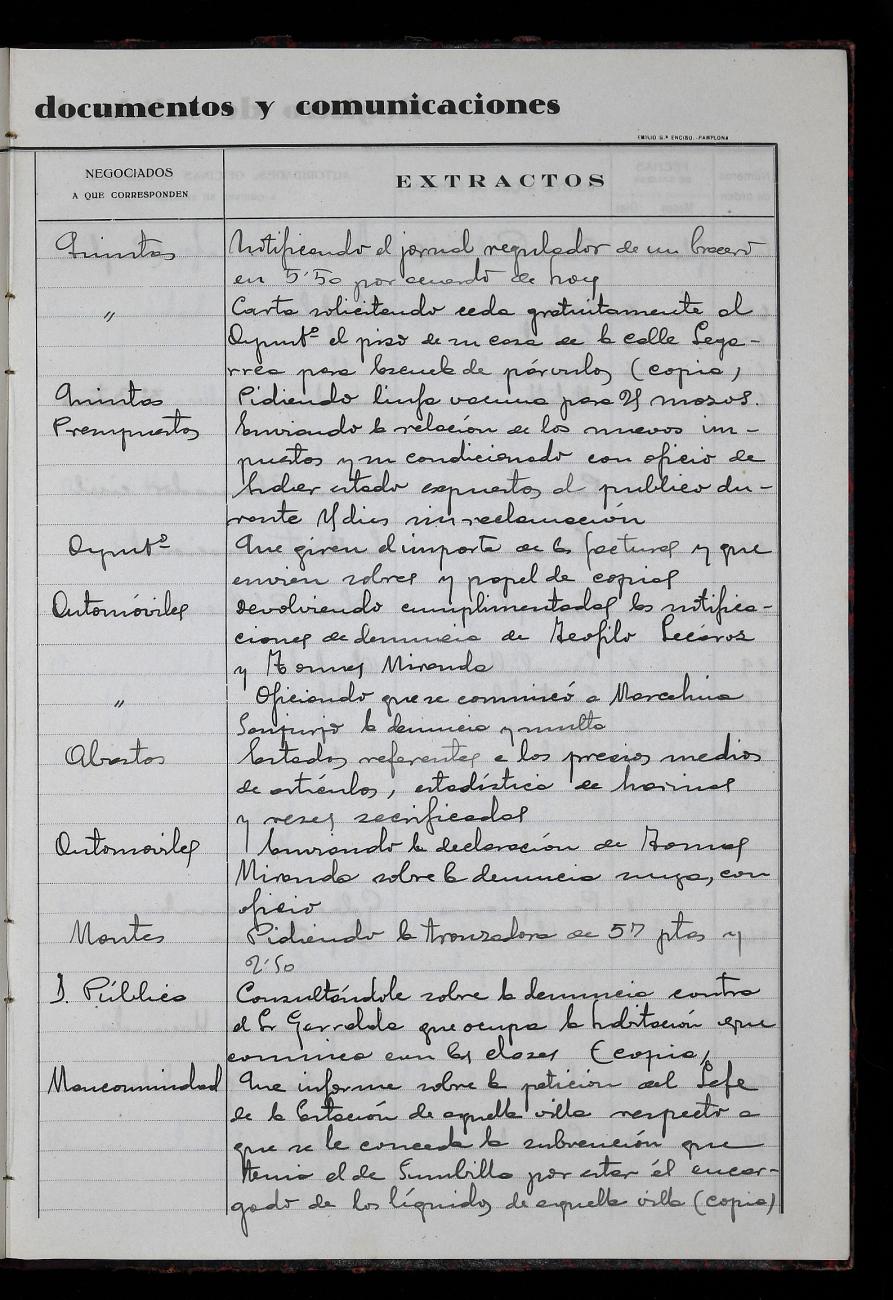 documentos y comunicaciones
EMILIO G.ª ENCISO.-PAMPLONA
NEGOCIADOS
A QUE CORRESPONDEN
EXTRACTOS
Quintas Notificando el jornal regulador de un bracero
en 5'50 por acuerdo de hoy
" Carta solicitando ceda gratuitamente al
Ayuntº el piso de su casa de la calle Lega-
rrea para Escuela de párvulos (copia)
Quintas Pidiendo linfa vacuna para mozos.
Presupuestos Enviando la relación de los nuevos im-
puestos y su condicionado con oficio de
haber estado expuestos al publico du-
rante dias sin reclamación
Ayuntº Que giren el importe de las facturas y que
envien sobres y papel de copias
Automóviles Devolviendo cumplimentadas las notifica-
ciones de denuncia de Teofilo Lecároz
y Tomas Miranda
" Oficiando que se comunicó a Marcelina
Sanjurjo la denuncia y multa
Abastos Estados referentes a los precios medios
de artículos, estadística de harinas
y reses sacrificadas
Automoviles Enviando la declaración de Tomas
Miranda sobre la denuncia suya, con
oficio
Montes Pidiendo la tronzadora de 57 ptas y
2'50
I. Pública Consultándole sobre la denuncia contra
el Sr Garralda que ocupa la habitación que
comunica con las clases (copia)
Mancomunidad Que informe sobre la petición del Jefe
de la Estación de aquella villa respecto a
que se le conceda la subvención que
tenia el de Sumbilla por estar él encar-
gado de los líquidos de aquella villa (copia)